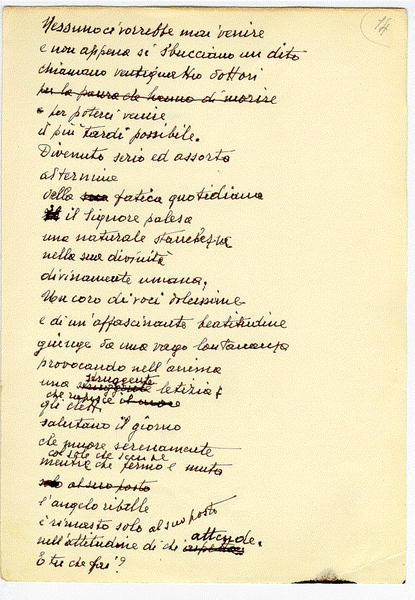 14
Nessuno ci vorrebbe mai venire
e non appena si sbucciano un dito
chiamano ventiquattro dottori
per la paura che hanno di morire
e per poterci venire
il più tardi possibile.
Divenuto serio ed assorto
al termine
della sua fatica quotidiana
il Signore palesa
una naturale stanchezza
nella sua divinità
divinamente umana.
Un coro di voci dolcissime
e di un'affascinante beatitudine
giunge da una vaga lontananza
provocando nell'anima
struggente
una letizia
che rapisce il cuore
gli eletti
salutano il giorno
che muore serenamente
col sole che scende
mentre che fermo e muto
solo al suo posto
l'angelo ribelle
è rimasto solo al suo posto
attende.
nell'attitudine di chi aspettasse
E tu che fai?